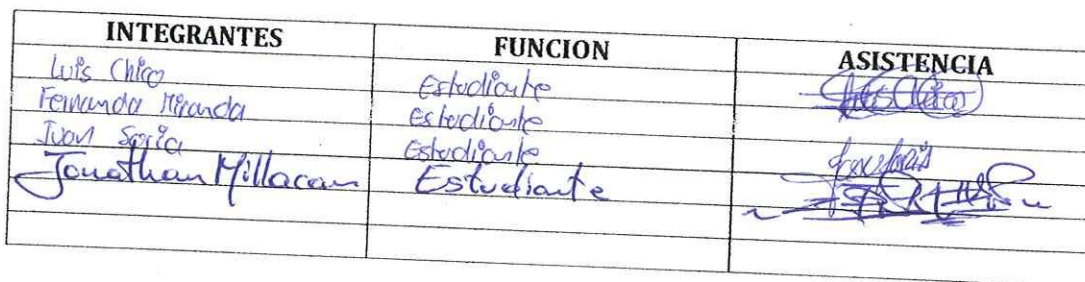 INTEGRANTES FUNCION ASISTENCIA
Luis Chico Estudiante Luis Chico
Fernanda Miranda Estudiante
Juan Soria Estudiante
Jonathan Millacan Estudiante